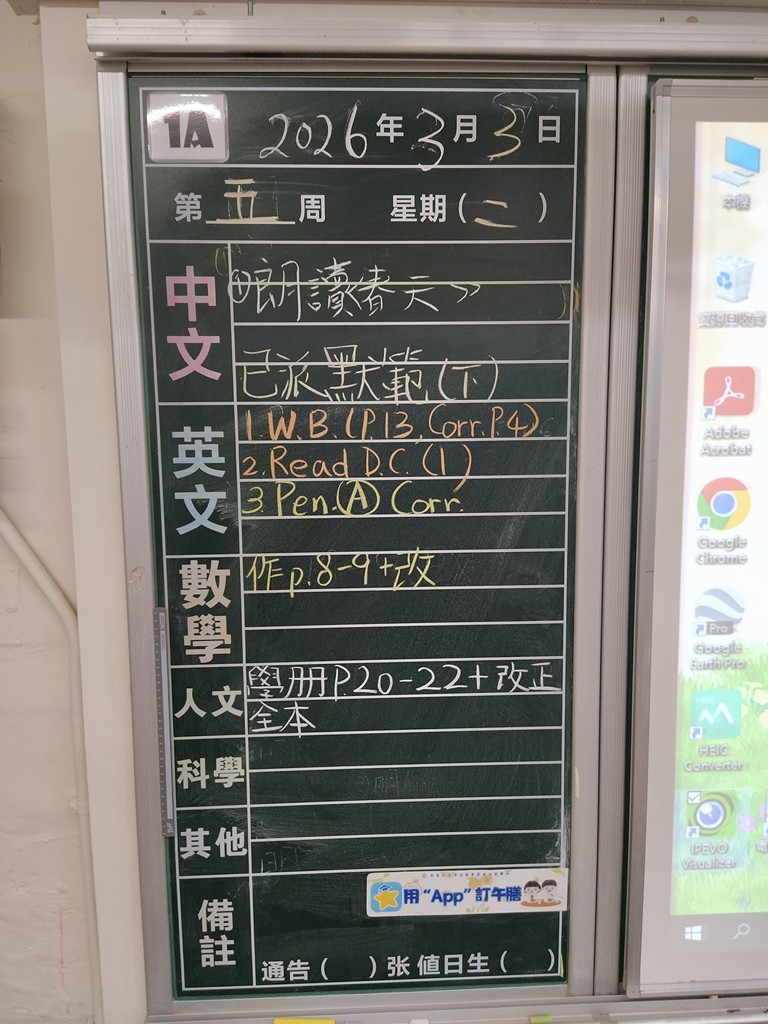 1A
2026年3月3日
第五周 星期(二)
中文
①朗讀<春天>>
已派默範(下)
英文
1.W.B.(P.13, Corr.P.4)
2.Read D.C.(1)
3.Pen.Ⓐ Corr.
數學
作p.8-9+改
人文
學册P.20-22+改正
全本
科學
其他
備註
用“App”訂午膳
通告( )张 值日生( )
本機
資源回收筒
Adobe
Acrobat
Google
Chrome
Pro
Google
Earth Pro
HEIC
HEIC
Converter
IPEVO
Visualizer